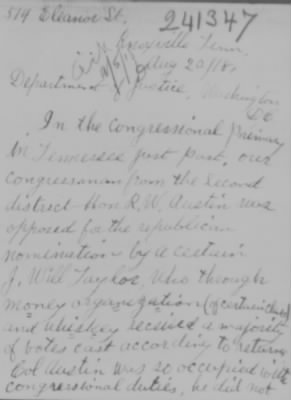 519 Eleanor St. 241347
Knoxville Tenn.
Aug 20/18.
Department of Justice, Washington
DC
In the congressional primary
in Tennessee just past, our
congressman from the second
district Hon R. W. Austin was
opposed for the republican
nomination by a certain
J. Will Taylor, who through
money organization (of certain
and whiskey received a majority
of votes cast according to returns
Col Austin was so occupied with
congressional duties, he did not